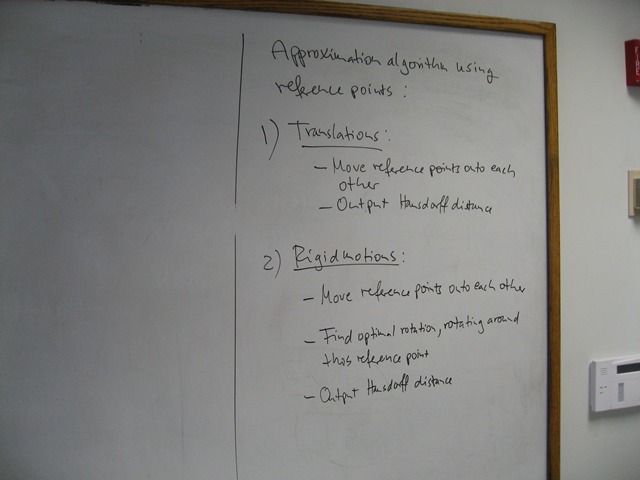 Approximation algorithm using
reference points:
1) Translations:
- Move reference points onto each
other
- Output Hausdorff distance
2) Rigid motions:
- Move reference points onto each other
- Find optimal rotation, rotating around
this reference point
- Output Hausdorff distance
FIRE